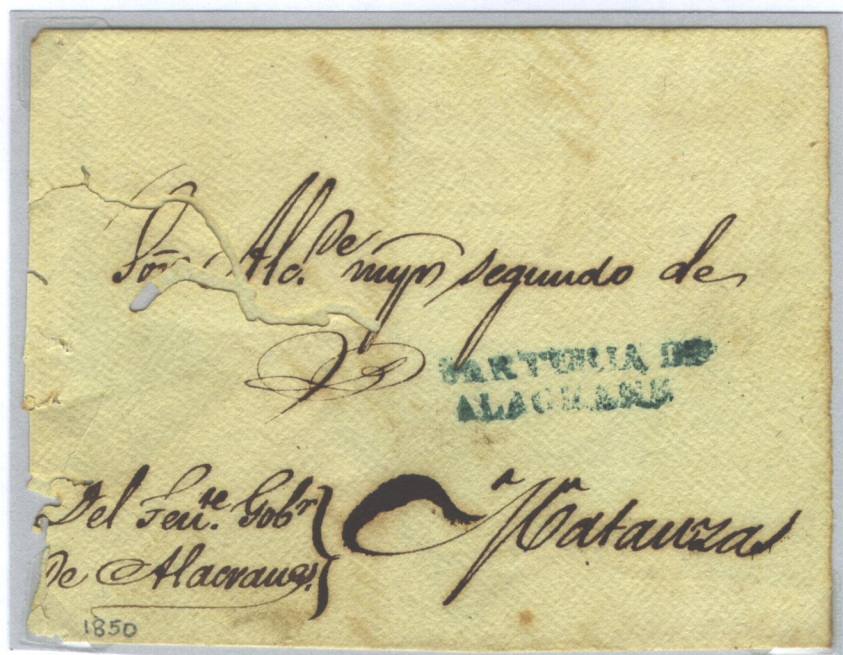 Sor. Alc.de myr segundo de
CARTERIA DE
ALACRANE
Del Tente. Gobr
De Alacranes.
Matanzas
1850